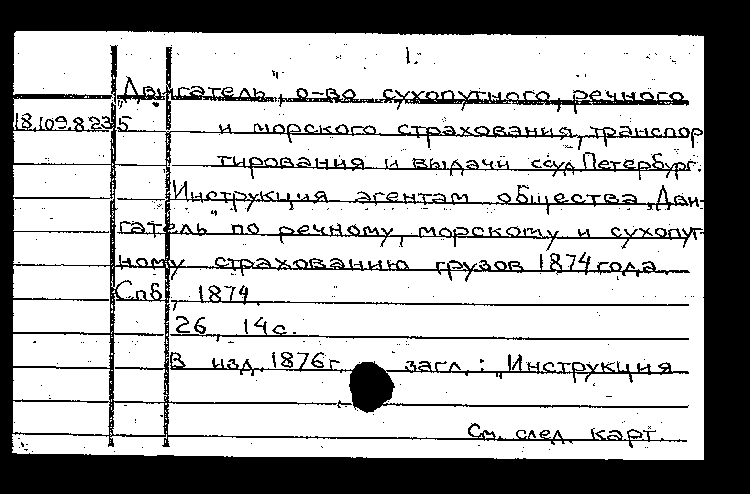 1.
„Двигатель", о-во сухопутного, речного
18.109.8.235 и морского страхования, транспор
тирования и выдачи ссуд. Петербург.
Инструкция агентам общества „Дви-
гатель" по речному, морскому и сухопут-
ному страхованию грузов 1874 года.
Спб, 1874.
26, 14 с.
В изд. 1876 г. загл.: „Инструкция
См. след. карт.